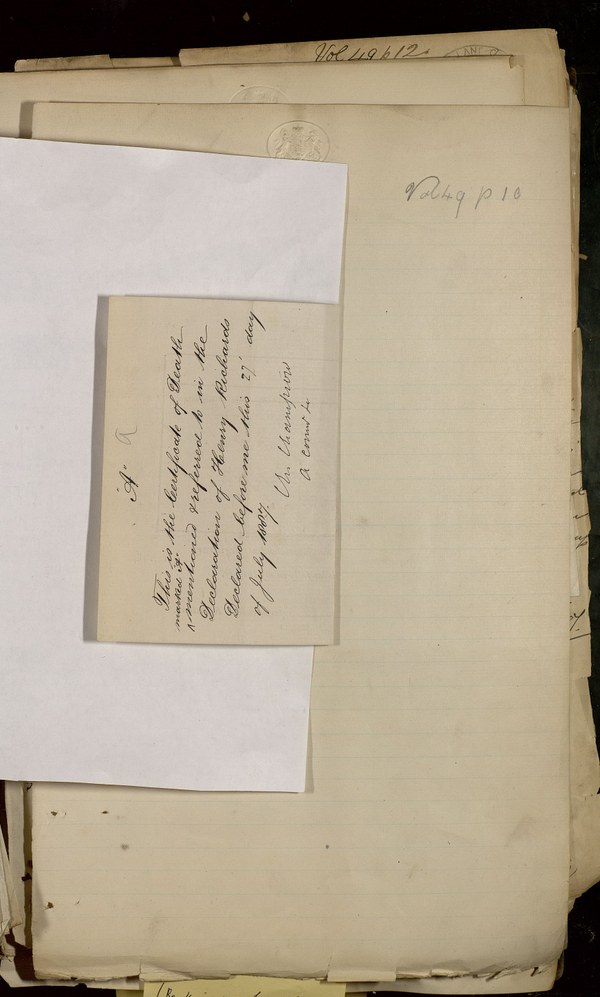 Vol 49 p 12
Vol 49 p 10
"A" A
This is the Certificate of Death
marked A
mentioned & referred to in the
Declaration of Henry Richards
Declared before me this 27 day
of July 1887.
Wm Champion
A Comr &c